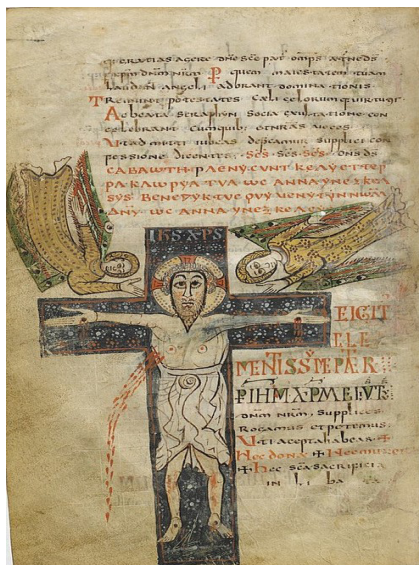 agere dne sce pat omps
dnm nrm P quem maiestatem tuam
laudan angeli adorant dominationis
Tremunt potestates caeli celorumque uirtutes
Ac beata seraphyn socia exultatione con
celebrant cumquib; et nras uoces
Ut admitti iubeas depcamur supplici con
fessione dicentes · Scs · Scs · Scs · dns ds
CABAWTH PLENY CUNT KELY ET TER
PA KLWPYA TUA WC ANNA YNEXKEL
SYS BENEDYKTUC QUY UENYT YN NWM
DNY WC ANNA YNEXKELCYC
IHS XPS
EIGIT
ELE
MENTISSYME PATER
P IHM XPM
dnm nrm, supplices
Rogamus et petimus
Uti accepta habeas +
Hec dona + Hec munera
+ Hec sca sacrificia
in li ba ta